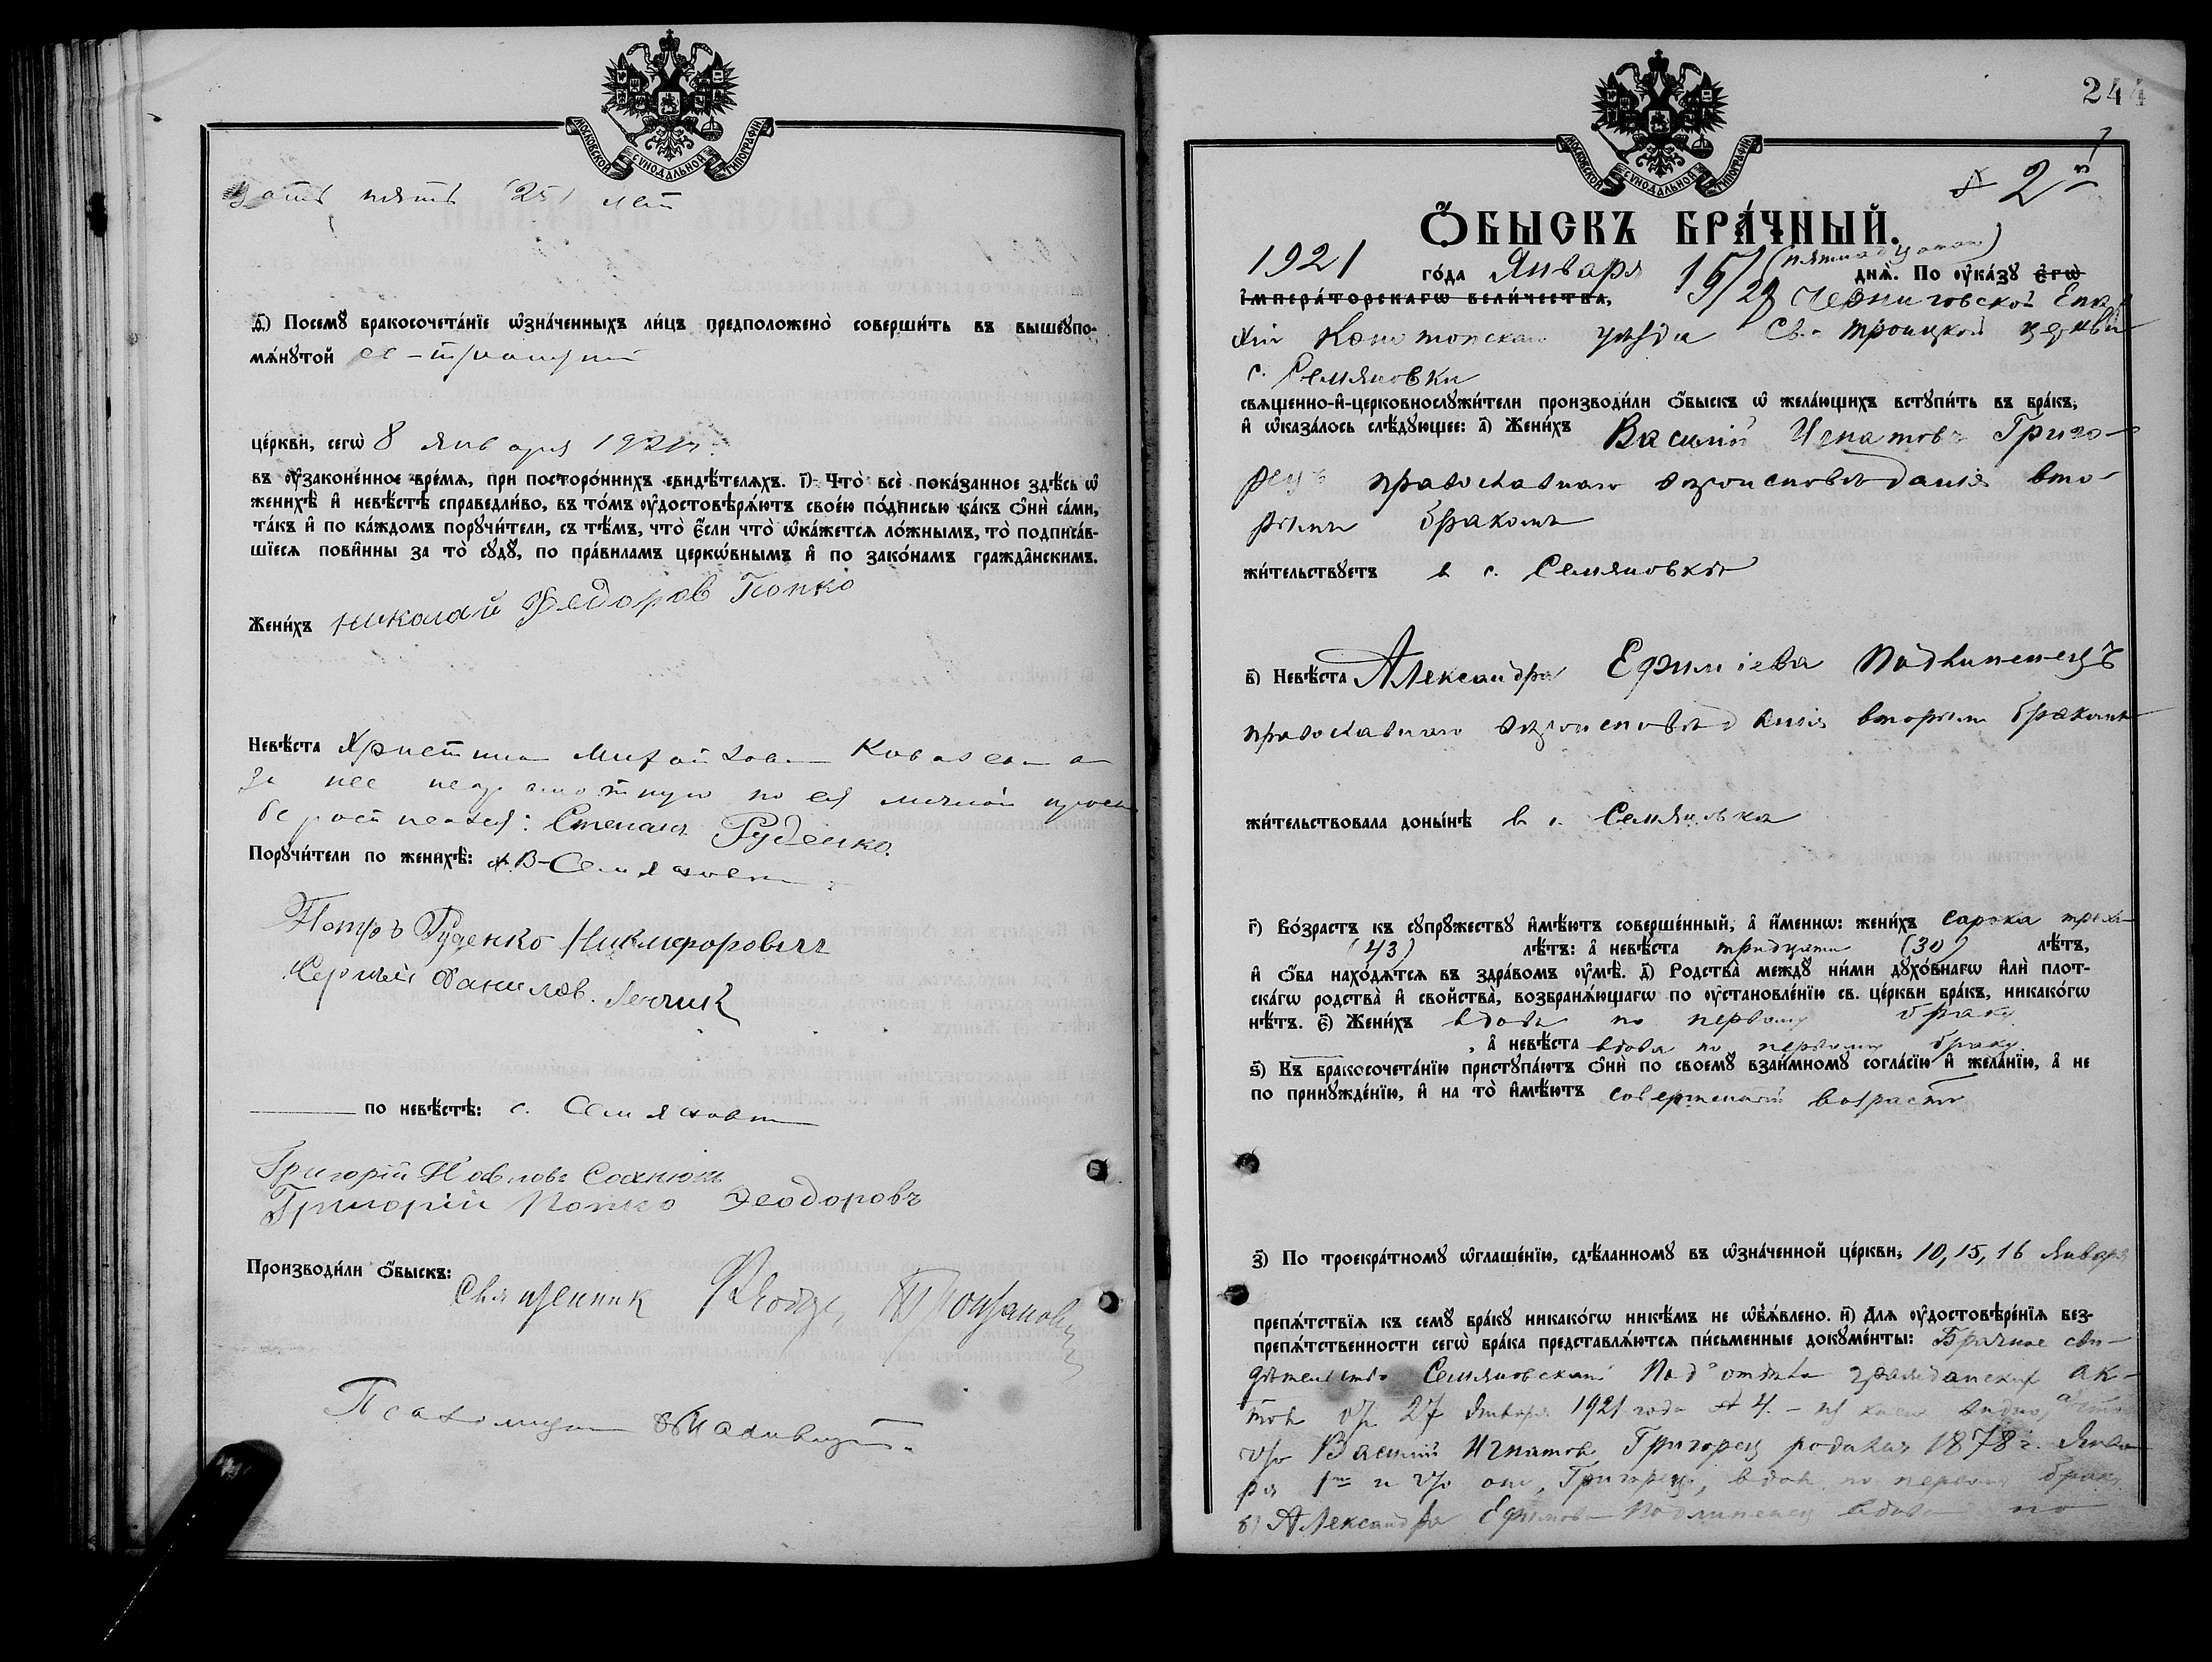 МОСКОВСКОЙ СѴНОДАЛЬНОЙ ТИПОГРАФІИ
цать пять (25) лет
д҃) Посемꙋ̀ бракосочета́нїе ѡ҆зна́ченныхъ ли́цъ предположено̀ соверши́ть въ вышеꙋпо-
мѧ́нꙋтой
це́ркви, сегѡ̀ 8 января 1921 г.
въ ᲂу҆зако́ненное вре́мѧ, при посторо́ннихъ свидѣ́телѧхъ. і҃) Что̀ всѐ пока́занное здѣ́сь ѡ҆
женихѣ̀ и҆ невѣ́стѣ справедли́во, въ то́мъ ᲂу҆достовѣрѧ́ютъ свое́ю по́дписью ка́къ ѻ҆нѝ са́ми,
та́къ и҆ по ка́ждомъ порꙋчи́тели, съ тѣ́мъ, что̀ є҆́сли что̀ ѡ҆ка́жетсѧ ло́жнымъ, то̀ подписа́в-
шїесѧ пови́нны за то̀ сꙋдꙋ̀, по пра́виламъ церкѡ́внымъ и҆ по зако́намъ гражда́нскимъ.
Жени́хъ Николай Федоров Попко
Невѣ́ста Христина Ковалева а
за нее неграмотную по ея личной
Степан Руденко.
Порꙋчи́тели по женихѣ̀:
Петръ Руденко Никифоровичъ
Сергѣй Данилов. Ленчик
по невѣ́стѣ: с.
Григорій
Григорій Попко Феодоровъ
Производи́ли ѻ҆́быскъ:
Священник
Псаломщик
244
МОСКОВСКОЙ СѴНОДАЛЬНОЙ ТИПОГРАФІИ
№ 2й
Ѻ҆́БЫСКЪ БРА́ЧНЫЙ.
1921 го́да Января 15/28 (пятнадцатого) днѧ̀. По ᲂу҆ка́зꙋ є҆гѡ̀
і҆мпера́торскагѡ вели́чества, Черниговской Епар
хіи Конотопскаго уѣзда Св.-Троицкой церкви
с. Семяновки
свѧще́нно-и҆-церковнослꙋжи́тели производи́ли ѻ҆́быскъ ѡ҆ жела́ющихъ встꙋпи́ть въ бра́къ,
и҆ ѡ҆каза́лось слѣ́дꙋющее: а҃) Жени́хъ Василій Игнатовъ Григо-
рецъ православнаго вѣроисповѣданія вто-
рымъ бракомъ
жи́тельствꙋетъ в с. Семяновкѣ
в҃) Невѣ́ста Александра Ефиміева Подлипенецъ
православнаго вѣроисповѣданія вторымъ бракомъ
жи́тельствовала доны́нѣ в с. Семяновкѣ
г҃) Во́зрастъ къ сꙋпрꙋ́жествꙋ и҆мѣ́ютъ соверше́нный, а҆ и҆́менно: жени́хъ сорока трехъ
(43) лѣ́тъ: а҆ невѣ́ста тридцати (30) лѣ́тъ,
и҆ ѻ҆́ба нахо́дѧтсѧ въ здра́вомъ ᲂу҆мѣ̀. д҃) Родства̀ междꙋ ни́ми дꙋхо́внагѡ и҆лѝ плот-
ска́гѡ родства̀ и҆ сво́йства̀, возбранѧ́ющагѡ по ᲂу҆становле́нїю св. це́ркви бра́къ, никако́гѡ
нѣ́тъ. є҃) Жени́хъ вдовъ по первому браку
, а҆ невѣ́ста вдова по первому браку.
ѕ҃) Къ бракосочета́нїю приступа́ютъ ѻ҆нѝ по своемꙋ̀ взаи́мномꙋ согла́сїю и҆ жела́нїю, а҆ не
по принꙋжде́нїю, и҆ на то̀ и҆мѣ́ютъ совершенный возрастъ
з҃) По троекра́тномꙋ ѡ҆глаше́нїю, сдѣ́ланномꙋ въ ѡ҆зна́ченной це́ркви, 10, 15, 16 Января
препѧ́тствїѧ къ семꙋ̀ бра́кꙋ никако́гѡ никѣ́мъ не ѡ҆б̾ѧ́влено. и҃) Длѧ ᲂу҆достовѣре́нїѧ без-
препѧ́тственности сегѡ̀ бра́ка представлѧ́ютсѧ пи́сьменные докꙋме́нты: Брачное сви-
дѣтельство Семяновскаго Подъотдѣла гражданских ак-
тов от 27 Января 1921 года № 4. - из коего видно,
что Василій Игнатов Григорец родился 1878 г. Янва-
ря 1го и что он, Григорец, вдов по первому браку
б) Александра Ефимова Подлипенец вдова по